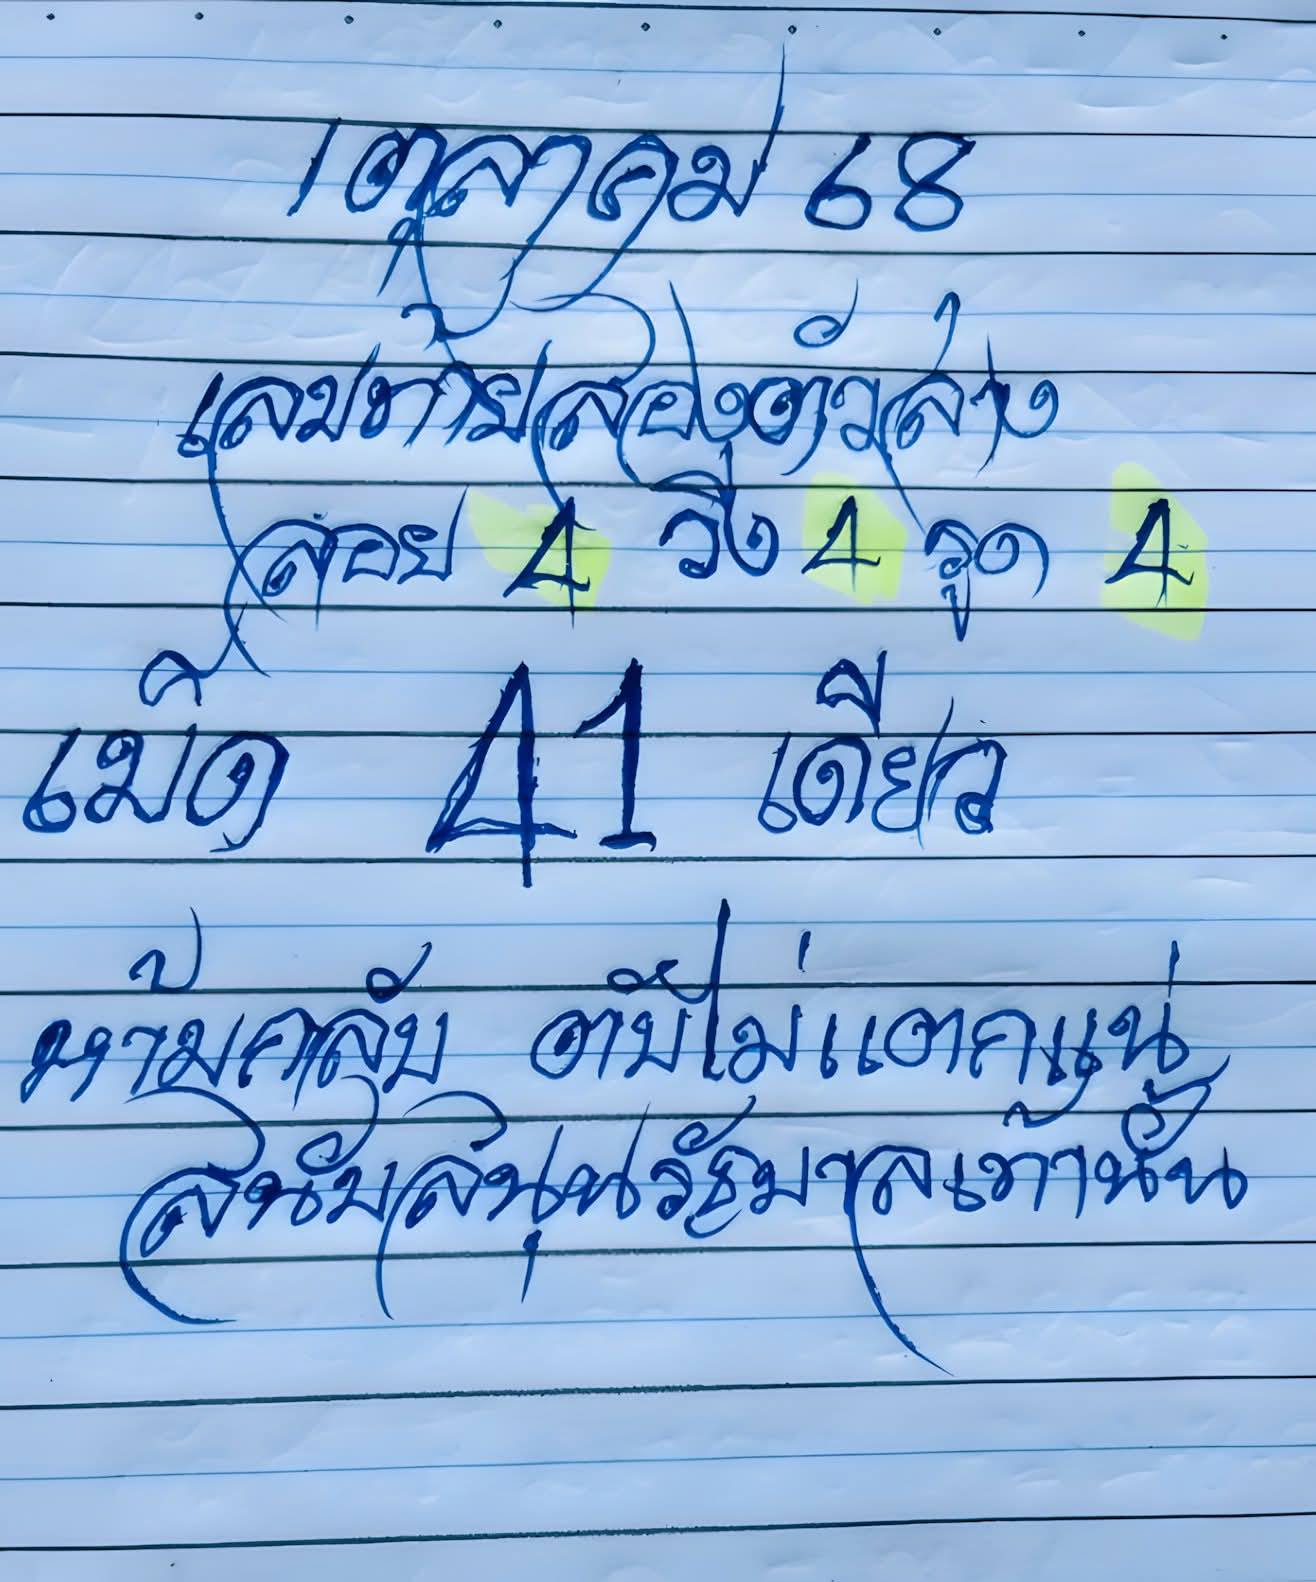 1 ตุลาคม 68
เลขท้ายสองตัวล่าง
ลอย 4 วิ่ง 4 รูด 4
เม็ด 41 เดียว
ห้ามกลับ งบไม่แตกแน่
สนับสนุนรัฐบาลเท่านั้น